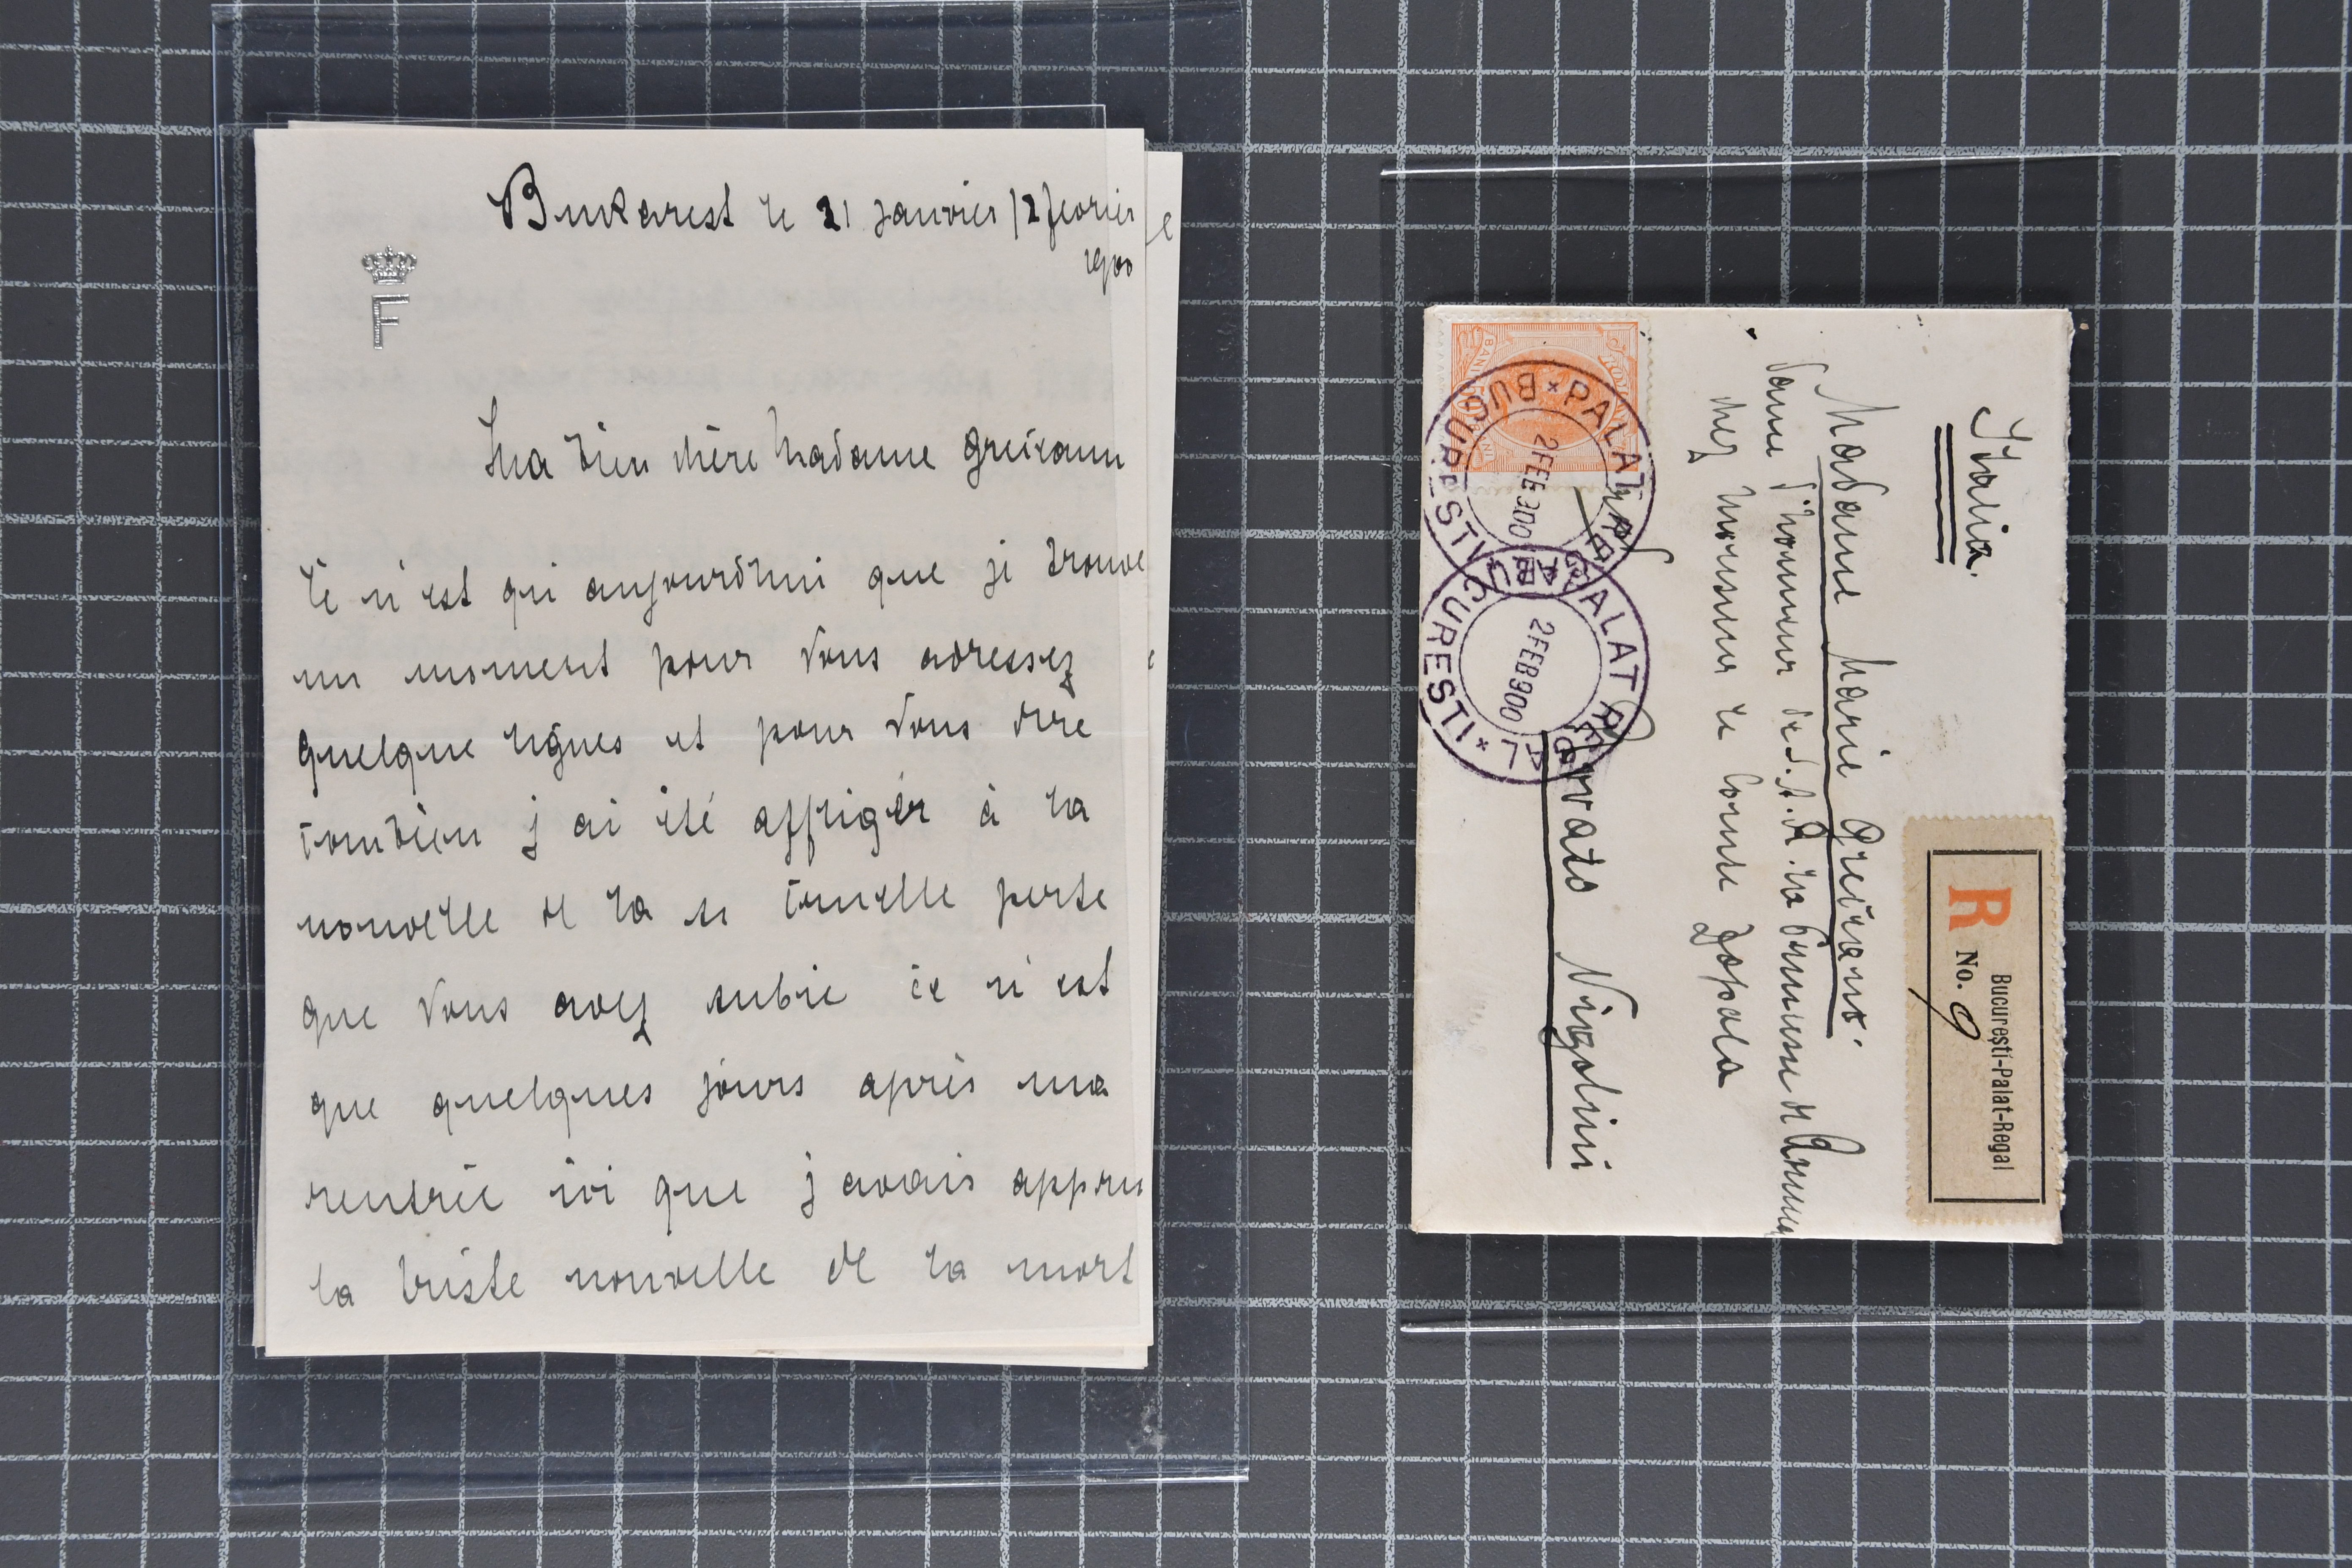 Bukarest le 21 janvier / 2 fevrier
1900
F
Ma bien chère Madame Greceanu
Ce n'est qu'aujourd'hui que je trouve
un moment pour Vous adressez
quelque lignes et pour Vous dire
combien j'ai été affligér à la
nouvelle de la si cruelle perte
que Vous avez subie ce n'est
que quelques jours après ma
rentrée ici que j'avais appru
la triste nouvelle de la mort
Italia.
Madame Marie Greceano.
Dame d'honneur de S. A. R. la Princesse de Roumanie
chez Monsieur le Comte Zopola
Nigolini
R
No. 9
Bucureşti-Palat-Regal
PALAT REGAL * BUCURESTI *
2FEB900
PALAT REGAL * BUCURESTI *
2FEB900
BANI 50